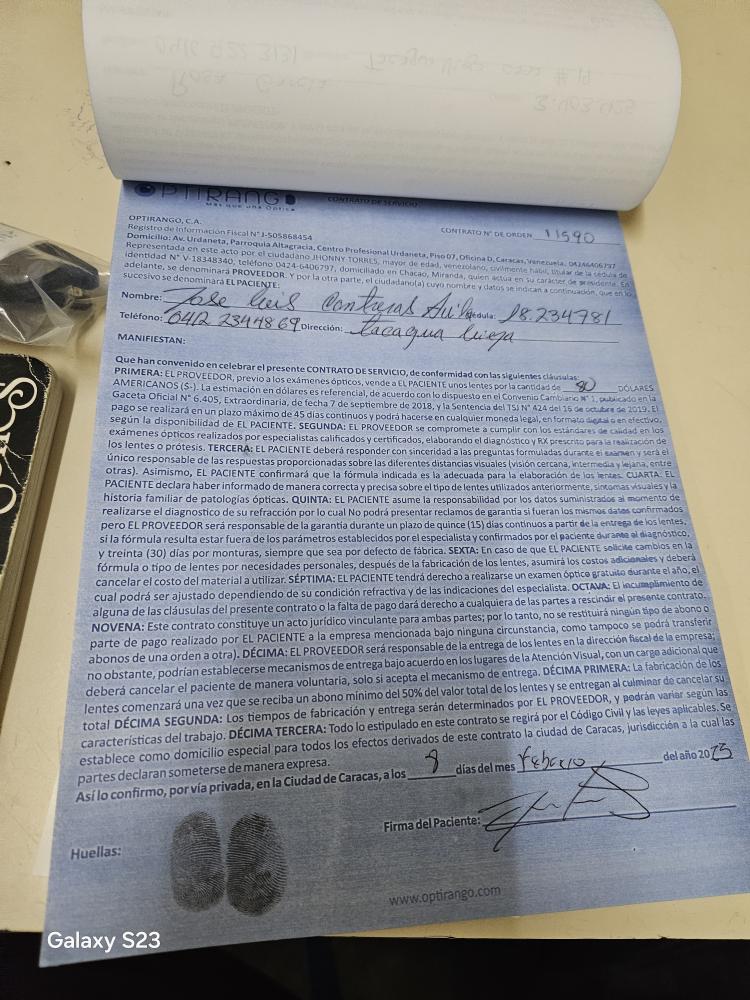 OPTIRANGO
Más que una Óptica
CONTRATO DE SERVICIO
OPTIRANGO, C.A.
CONTRATO N° DE ORDEN 11590
Registro de Información Fiscal N° J-505868454
Domicilio: Av. Urdaneta, Parroquia Altagracia, Centro Profesional Urdaneta, Piso 07, Oficina D, Caracas, Venezuela. 04246406797
Representada en este acto por el ciudadano JHONNY TORRES, mayor de edad, venezolano, civilmente hábil, titular de la cédula de
identidad N° V-18348340, teléfono 0424-6406797, domiciliado en Chacao, Miranda, quien actúa en su carácter de presidente. En
adelante, se denominará PROVEEDOR y por la otra parte, el ciudadano(a) cuyo nombre y datos se indican a continuación, que en lo
sucesivo se denominará EL PACIENTE:
Nombre: Jose Luis Contreras Cédula: 18.234781
Teléfono: 0412 2344869 Dirección: Tacagua Vieja
MANIFIESTAN:
Que han convenido en celebrar el presente CONTRATO DE SERVICIO, de conformidad con las siguientes cláusulas:
PRIMERA: EL PROVEEDOR, previo a los exámenes ópticos, vende a EL PACIENTE unos lentes por la cantidad de 80 DÓLARES
AMERICANOS ($-). La estimación en dólares es referencial, de acuerdo con lo dispuesto en el Convenio Cambiario N° 1, publicado en la
Gaceta Oficial N° 6.405, Extraordinaria, de fecha 7 de septiembre de 2018, y la Sentencia del TSJ N° 424 del 16 de octubre de 2019. El
pago se realizará en un plazo máximo de 45 días continuos y podrá hacerse en cualquier moneda legal, en formato digital o en efectivo,
según la disponibilidad de EL PACIENTE. SEGUNDA: EL PROVEEDOR se compromete a cumplir con los estándares de calidad en los
exámenes ópticos realizados por especialistas calificados y certificados, elaborando el diagnóstico y RX prescrito para la realización de
los lentes o prótesis. TERCERA: EL PACIENTE deberá responder con sinceridad a las preguntas formuladas durante el examen y será el
único responsable de las respuestas proporcionadas sobre las diferentes distancias visuales (visión cercana, intermedia y lejana, entre
otras). Asimismo, EL PACIENTE confirmará que la fórmula indicada es la adecuada para la elaboración de los lentes. CUARTA: EL
PACIENTE declara haber informado de manera correcta y precisa sobre el tipo de lentes utilizados anteriormente, síntomas visuales y la
historia familiar de patologías ópticas. QUINTA: EL PACIENTE asume la responsabilidad por los datos suministrados al momento de
realizarse el diagnostico de su refracción por lo cual No podrá presentar reclamos de garantía si fueran los mismos datos confirmados
pero EL PROVEEDOR será responsable de la garantía durante un plazo de quince (15) días continuos a partir de la entrega de los lentes,
si la fórmula resulta estar fuera de los parámetros establecidos por el especialista y confirmados por el paciente durante el diagnóstico,
y treinta (30) días por monturas, siempre que sea por defecto de fábrica. SEXTA: En caso de que EL PACIENTE solicite cambios en la
fórmula o tipo de lentes por necesidades personales, después de la fabricación de los lentes, asumirá los costos adicionales y deberá
cancelar el costo del material a utilizar. SÉPTIMA: EL PACIENTE tendrá derecho a realizarse un examen óptico gratuito durante el año, el
cual podrá ser ajustado dependiendo de su condición refractiva y de las indicaciones del especialista. OCTAVA: El incumplimiento de
alguna de las cláusulas del presente contrato o la falta de pago dará derecho a cualquiera de las partes a rescindir el presente contrato.
NOVENA: Este contrato constituye un acto jurídico vinculante para ambas partes; por lo tanto, no se restituirá ningún tipo de abono o
parte de pago realizado por EL PACIENTE a la empresa mencionada bajo ninguna circunstancia, como tampoco se podrá transferir
abonos de una orden a otra). DÉCIMA: EL PROVEEDOR será responsable de la entrega de los lentes en la dirección fiscal de la empresa;
no obstante, podrían establecerse mecanismos de entrega bajo acuerdo en los lugares de la Atención Visual, con un cargo adicional que
deberá cancelar el paciente de manera voluntaria, solo si acepta el mecanismo de entrega. DÉCIMA PRIMERA: La fabricación de los
lentes comenzará una vez que se reciba un abono mínimo del 50% del valor total de los lentes y se entregan al culminar de cancelar su
total DÉCIMA SEGUNDA: Los tiempos de fabricación y entrega serán determinados por EL PROVEEDOR, y podrán variar según las
características del trabajo. DÉCIMA TERCERA: Todo lo estipulado en este contrato se regirá por el Código Civil y las leyes aplicables. Se
establece como domicilio especial para todos los efectos derivados de este contrato la ciudad de Caracas, jurisdicción a la cual las
partes declaran someterse de manera expresa.
Así lo confirmo, por vía privada, en la Ciudad de Caracas, a los 8 días del mes Febrero del año 2025
Firma del Paciente:
Huellas:
www.optirango.com
Galaxy S23